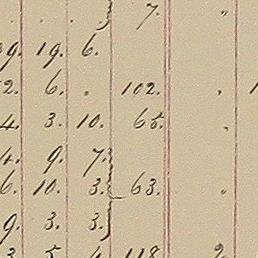 7. "
39. 19. 6.
2. 6. " 102. .
4. 3. 10. 65. "
4. 9. 7.
6. 10. 3. 63. "
9. 3. 3.
3. 5. 4. 118. 2.